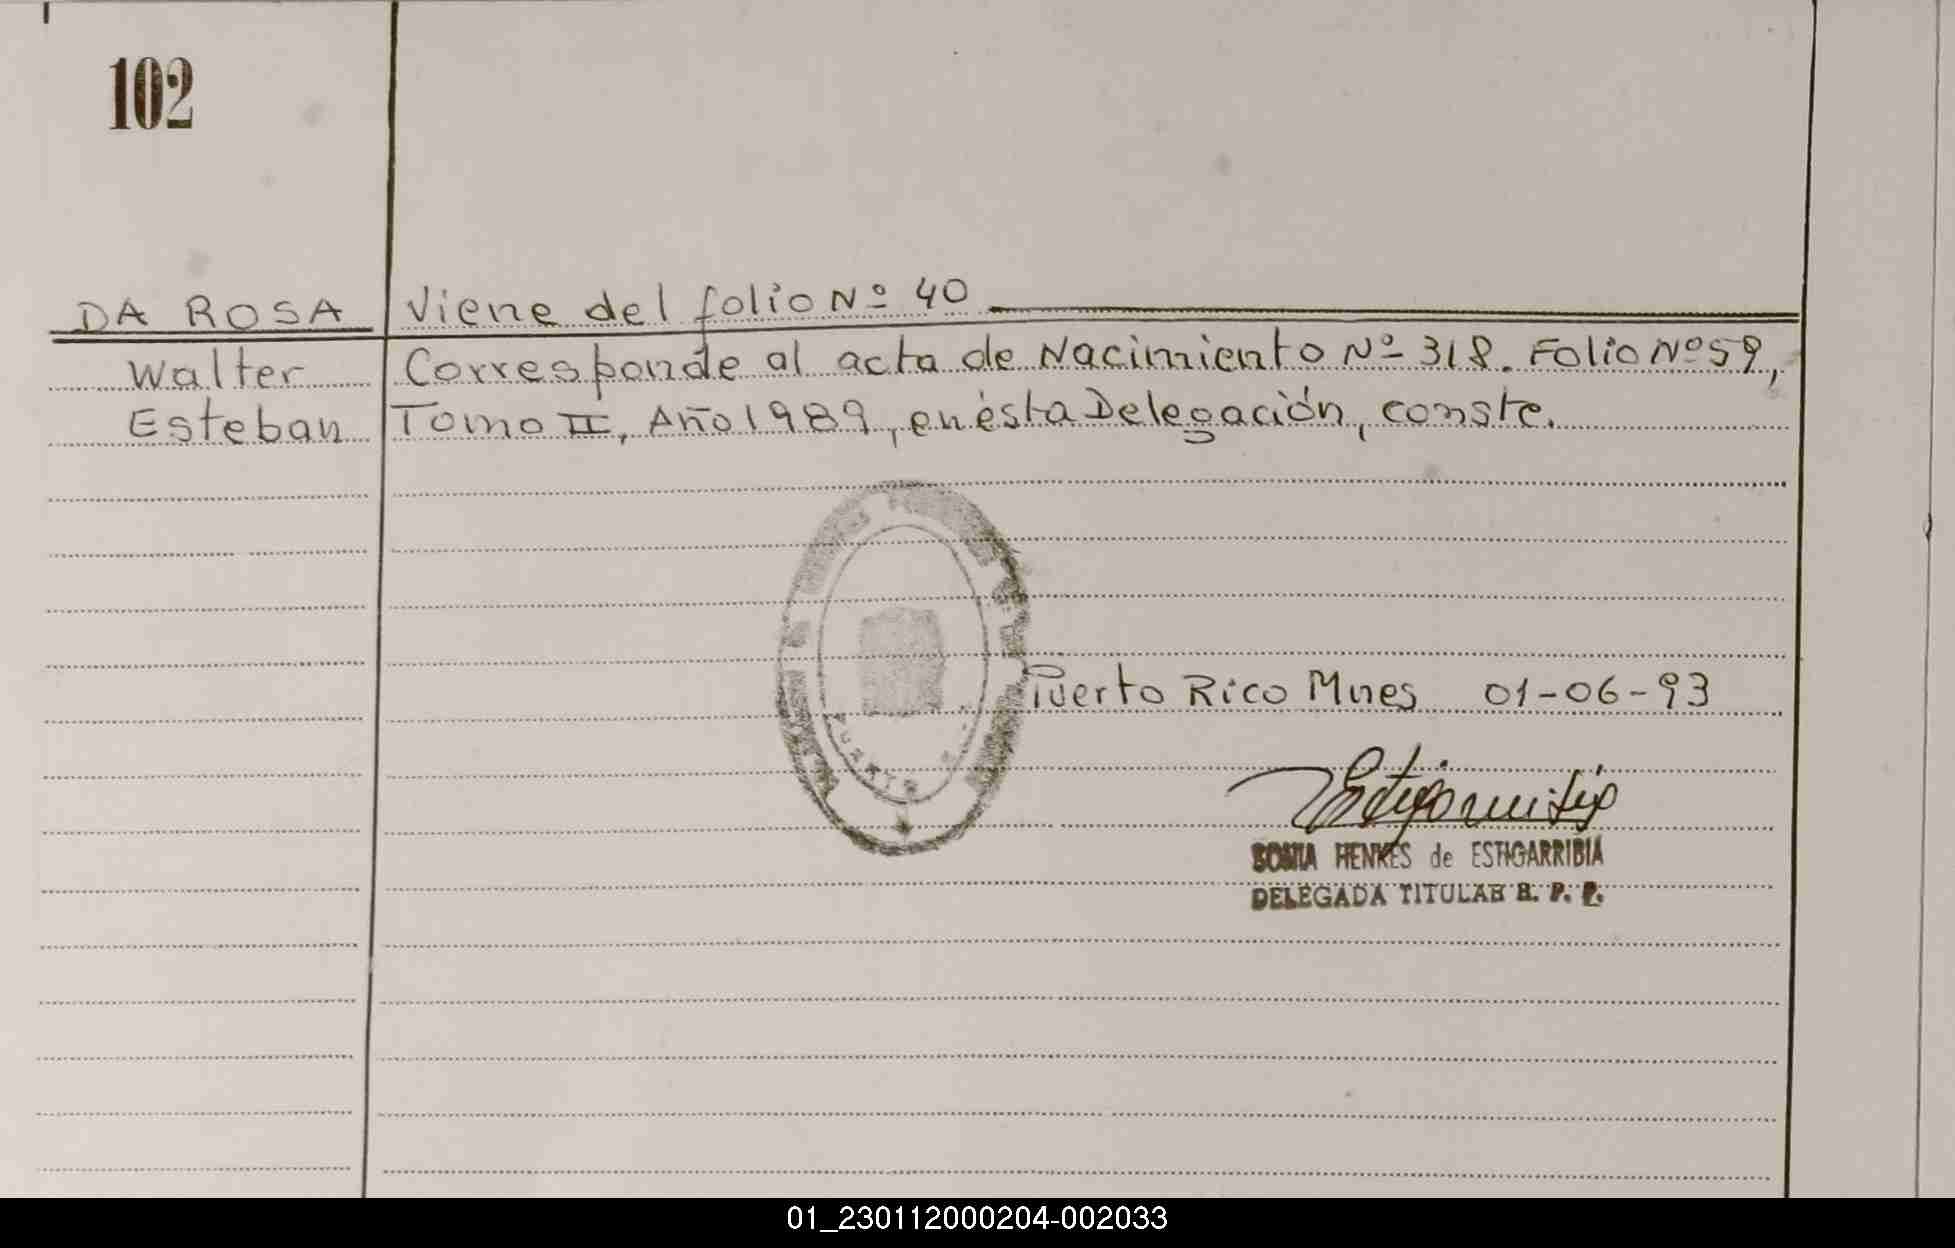 102
DA ROSA Viene del folio Nº 40
Walter Corresponde al acta de Nacimiento Nº 318. Folio Nº 59,
Esteban Tomo II, Año 1989, en ésta Delegación, conste.
PUERTO
Puerto Rico Mnes 01-06-93
SONIA HENKES de ESTIGARRIBIA
DELEGADA TITULAR R. P. P.
01_230112000204-002033